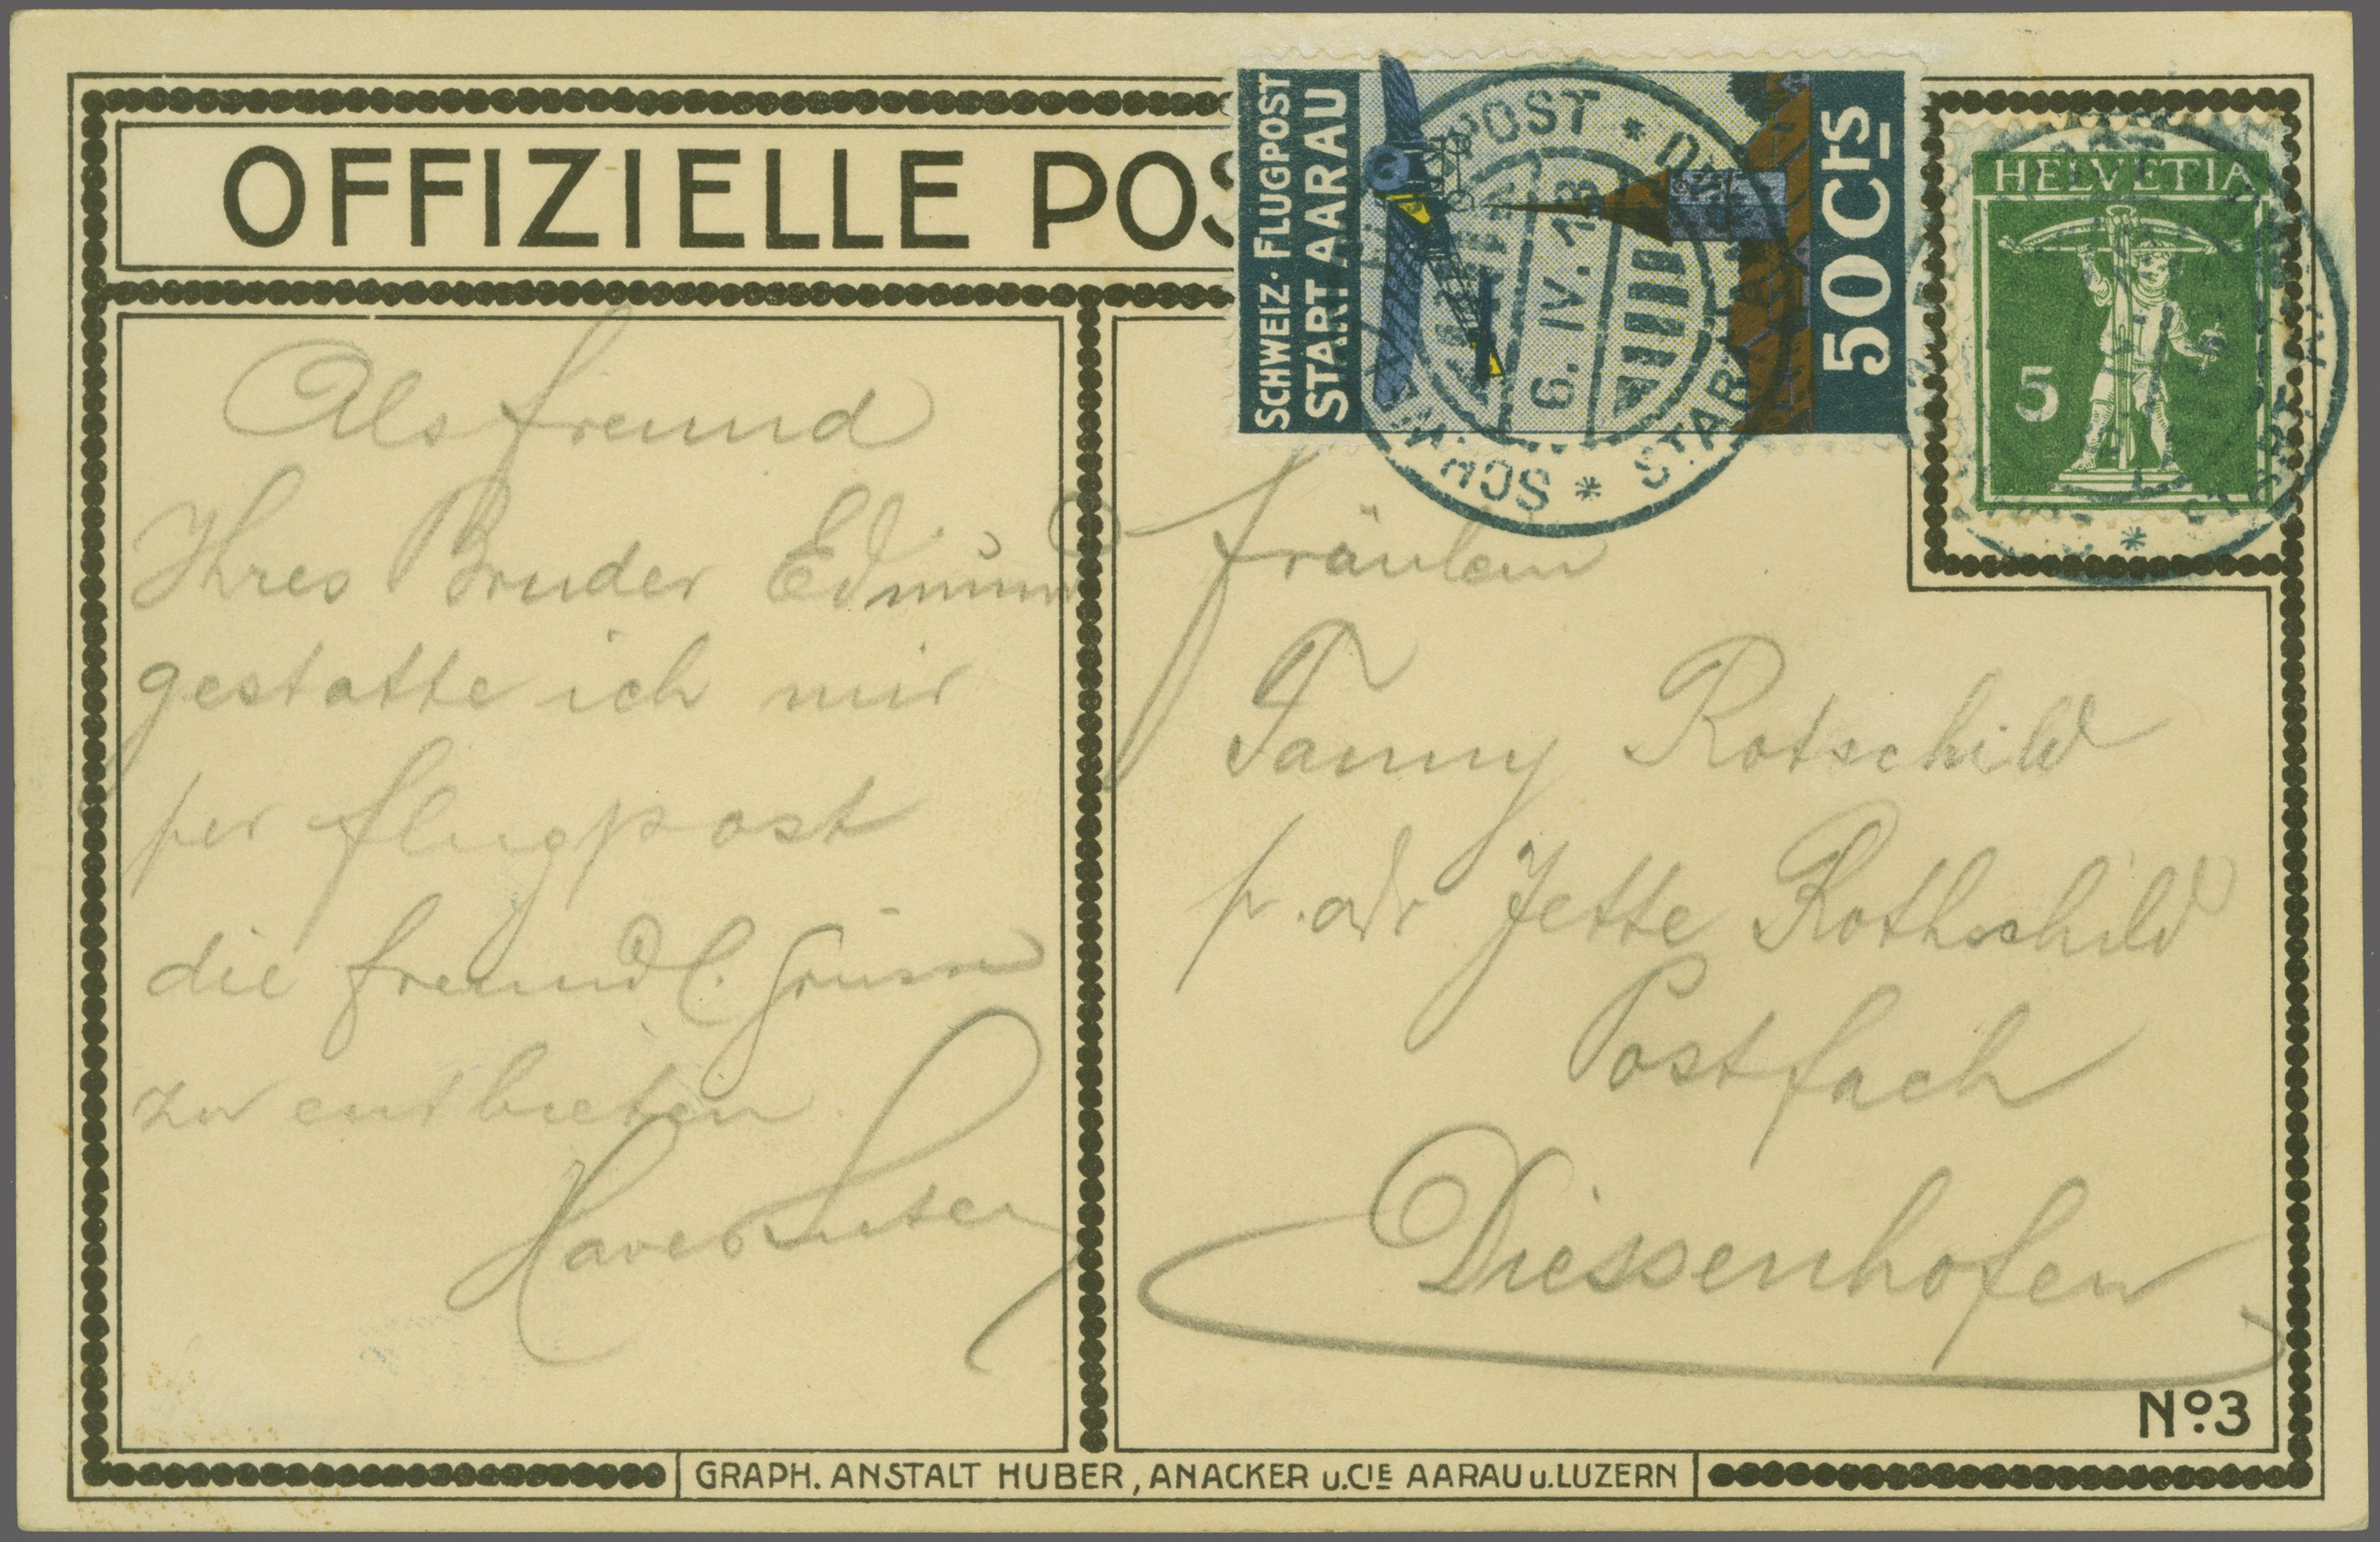 OFFIZIELLE POS
SCHWEIZ. FLUGPOST
START AARAU
50 Cts
POST * 
6. IV. 13
SCHWEI * START AARAU
HELVETIA
5
Als Freund
Ihres Bruder Edmund
gestatte ich mir
per Flugpost
die freundl. Grüsse
zu entbieten.
Fräulein
Fanny Rotschild
p. adr Jette Rothschild
Postfach
Diessenhofen
No. 3
GRAPH. ANSTALT HUBER, ANACKER u. CIE AARAU u. LUZERN